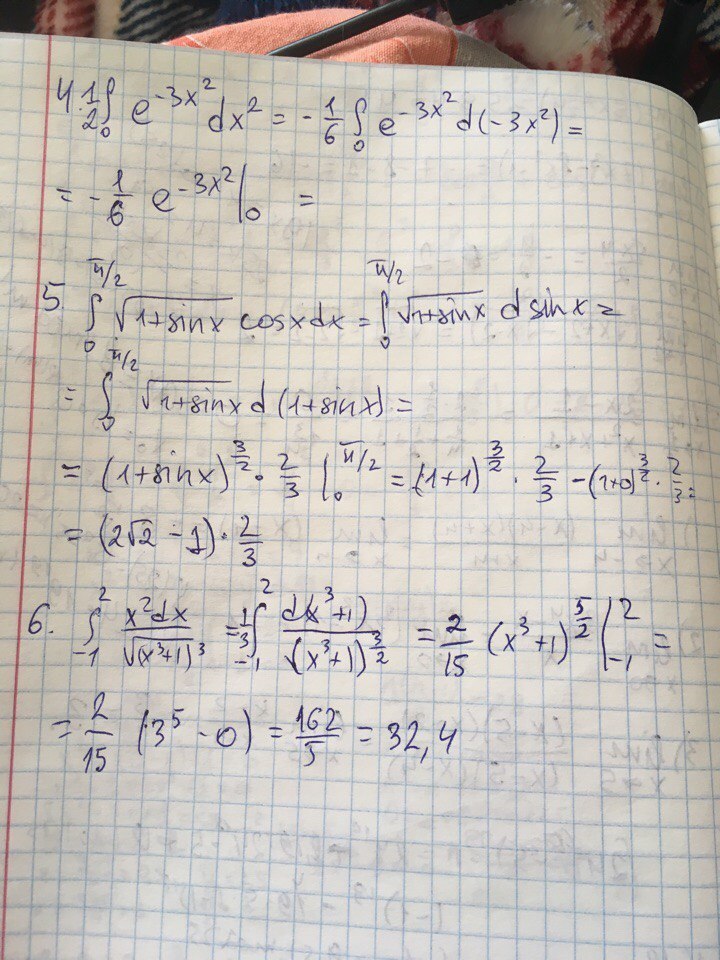 4 1/2 ∫₀ e^(-3x²) dx² = - 1/6 ∫₀ e^(-3x²) d(-3x²) =
= - 1/6 e^(-3x²) |₀ =
5. ∫₀^(π/2) √(1+sinx) cosxdx = ∫₀^(π/2) √(1+sinx) d sinx =
= ∫₀^(π/2) √(1+sinx) d (1+sinx) =
= (1+sinx)^(3/2) · 2/3 |₀^(π/2) = (1+1)^(3/2) · 2/3 - (1+0)^(3/2) · 2/3 =
= (2√2 - 1) · 2/3
6. ∫₋₁² x²dx / √(x³+1)³ = 1/3 ∫₋₁² d(x³+1) / (x³+1)^(3/2) = 2/15 (x³+1)^(5/2) |₋₁² =
= 2/15 (3⁵ - 0) = 162/5 = 32,4